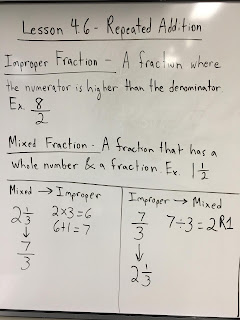 Lesson 4.6 - Repeated Addition
Improper Fraction - A fraction where
the numerator is higher than the denominator
Ex. 8/2
Mixed Fraction - A fraction that has a
whole number & a fraction. Ex. 1 1/2
Mixed → Improper
2 1/3 2x3=6
6+1=7
↓
7/3
Improper → Mixed
7/3 7÷3=2R1
↓
2 1/3